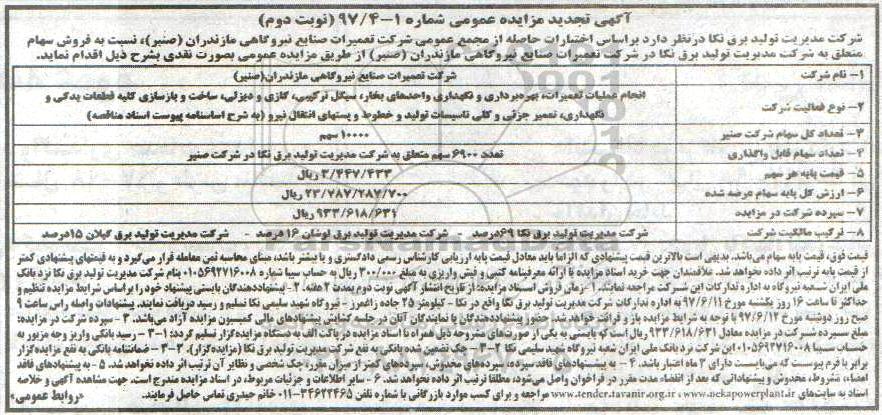 آگهی تجدید مزایده عمومی شماره ۱-۹۷/۴ (نوبت دوم)
شرکت مدیریت تولید برق نکا درنظر دارد براساس اختیارات حاصله از مجمع عمومی شرکت تعمیرات صنایع نیروگاهی مازندران (صنیر)، نسبت به فروش سهام
متعلق به شرکت مدیریت تولید برق نکا در شرکت تعمیرات صنایع نیروگاهی مازندران (صنیر) از طریق مزایده عمومی بصورت نقدی بشرح ذیل اقدام نماید.
۱- نام شرکت شرکت تعمیرات صنایع نیروگاهی مازندران(صنیر)
۲- نوع فعالیت شرکت انجام عملیات تعمیرات، بهره‌برداری و نگهداری واحدهای بخار، سیکل ترکیبی، گازی و دیزلی، ساخت و بازسازی کلیه قطعات یدکی و
نگهداری، تعمیر جزئی و کلی تاسیسات تولید و خطوط و پستهای انتقال نیرو (به شرح اساسنامه پیوست اسناد مناقصه)
۳- تعداد کل سهام شرکت صنیر ۱۰۰۰۰ سهم
۴- تعداد سهام قابل واگذاری تعدد ۶۹۰۰ سهم متعلق به شرکت مدیریت تولید برق نکا در شرکت صنیر
۵- قیمت پایه هر سهم ۳/۴۴۷/۴۳۳ ریال
۶- ارزش کل پایه سهام عرضه شده ۲۳/۷۸۷/۲۸۷/۷۰۰ ریال
۷- سپرده شرکت در مزایده ۹۳۳/۶۱۸/۶۳۱ ریال
۸- ترکیب مالکیت شرکت شرکت مدیریت تولید برق نکا ۶۹درصد - شرکت مدیریت تولید برق لوشان ۱۶ درصد - شرکت مدیریت تولید برق گیلان ۱۵درصد
قیمت فوق، قیمت پایه سهام می‌باشد. بدیهی است بالاترین قیمت پیشنهادی که الزاما باید معادل قیمت پایه ارزیابی کارشناس رسمی دادگستری و یا بیشتر باشد، مبنای محاسبه ثمن معامله قرار می‌گیرد و به قیمتهای پیشنهادی کمتر
از قیمت پایه ترتیب اثر داده نخواهد شد. علاقمندان جهت خرید اسناد مزایده با ارائه معرفینامه کتبی و فیش واریزی به مبلغ ۳۰۰/۰۰۰ ریال به حساب سیبا شماره ۰۱۰۵۶۹۲۷۱۶۰۰۸ بنام شرکت مدیریت تولید برق نکا نزد بانک
ملی ایران شعبه نیروگاه به اداره تدارکات این شرکت مراجعه نمایند. ۱- زمان فروش اسناد مزایده: از تاریخ انتشار آگهی نوبت دوم بمدت ۲ هفته. ۲- پیشنهاددهندگان بایستی پیشنهاد خود را براساس شرایط مزایده تنظیم و
حداکثر تا ساعت ۱۶ روز یکشنبه مورخ ۹۷/۶/۱۱ به اداره تدارکات شرکت مدیریت تولید برق نکا واقع در نکا - کیلومتر ۲۵ جاده زاغمرز - نیروگاه شهید سلیمی نکا تسلیم و رسید دریافت نمایند. پیشنهادات واصله راس ساعت ۹
صبح روز دوشنبه مورخ ۹۷/۶/۱۲ با توجه به شرایط مزایده باز و قرائت خواهد شد. حضور پیشنهاددهندگان یا نمایندگان آنان در جلسه گشایش پیشنهادهای مالی کمیسیون مزایده آزاد می‌باشد. ۳- سپرده شرکت در مزایده:
مبلغ سپرده شرکت در مزایده معادل ۹۳۳/۶۱۸/۶۳۱ ریال است که بایستی به یکی از صورت‌های مشروحه ذیل همراه با اسناد مزایده در پاکت الف به دستگاه مزایده‌گزار تسلیم گردد: ۱-۳- رسید بانکی واریز وجه مزبور به
حساب سیبا ۰۱۰۵۶۹۲۷۱۶۰۰۸ این شرکت نزد بانک ملی ایران شعبه نیروگاه شهید سلیمی نکا ۲-۳- چک تضمین شده بانکی به نفع شرکت مدیریت تولید برق نکا (مزایده‌گزار). ۳-۳- ضمانتنامه بانکی به نفع مزایده‌گزار
برابر با فرم پیوست که می‌بایست دارای ۳ ماه اعتبار باشد. ۴- به پیشنهادهای فاقد سپرده، سپرده‌های مخدوش، سپرده‌های کمتر از میزان مقرر، چک شخصی و نظایر آن ترتیب اثر داده نخواهد شد. ۵- به پیشنهادهای فاقد
امضاء، مشروط، مخدوش و پیشنهاداتی که بعد از انقضاء مدت مقرر در فراخوان واصل می‌شود، مطلقا ترتیب اثر داده نخواهد شد. ۶- سایر اطلاعات و جزئیات مربوط، در اسناد مزایده مندرج است. جهت مشاهده آگهی و خلاصه
اسناد به سایت‌های www.nekapowerplant.ir و www.tender.tavanir.org.ir مراجعه و برای کسب موارد بازرگانی با شماره تلفن ۳۴۶۲۲۴۶۵-۰۱۱ خانم حیدری تماس حاصل فرمایند. «روابط عمومی»